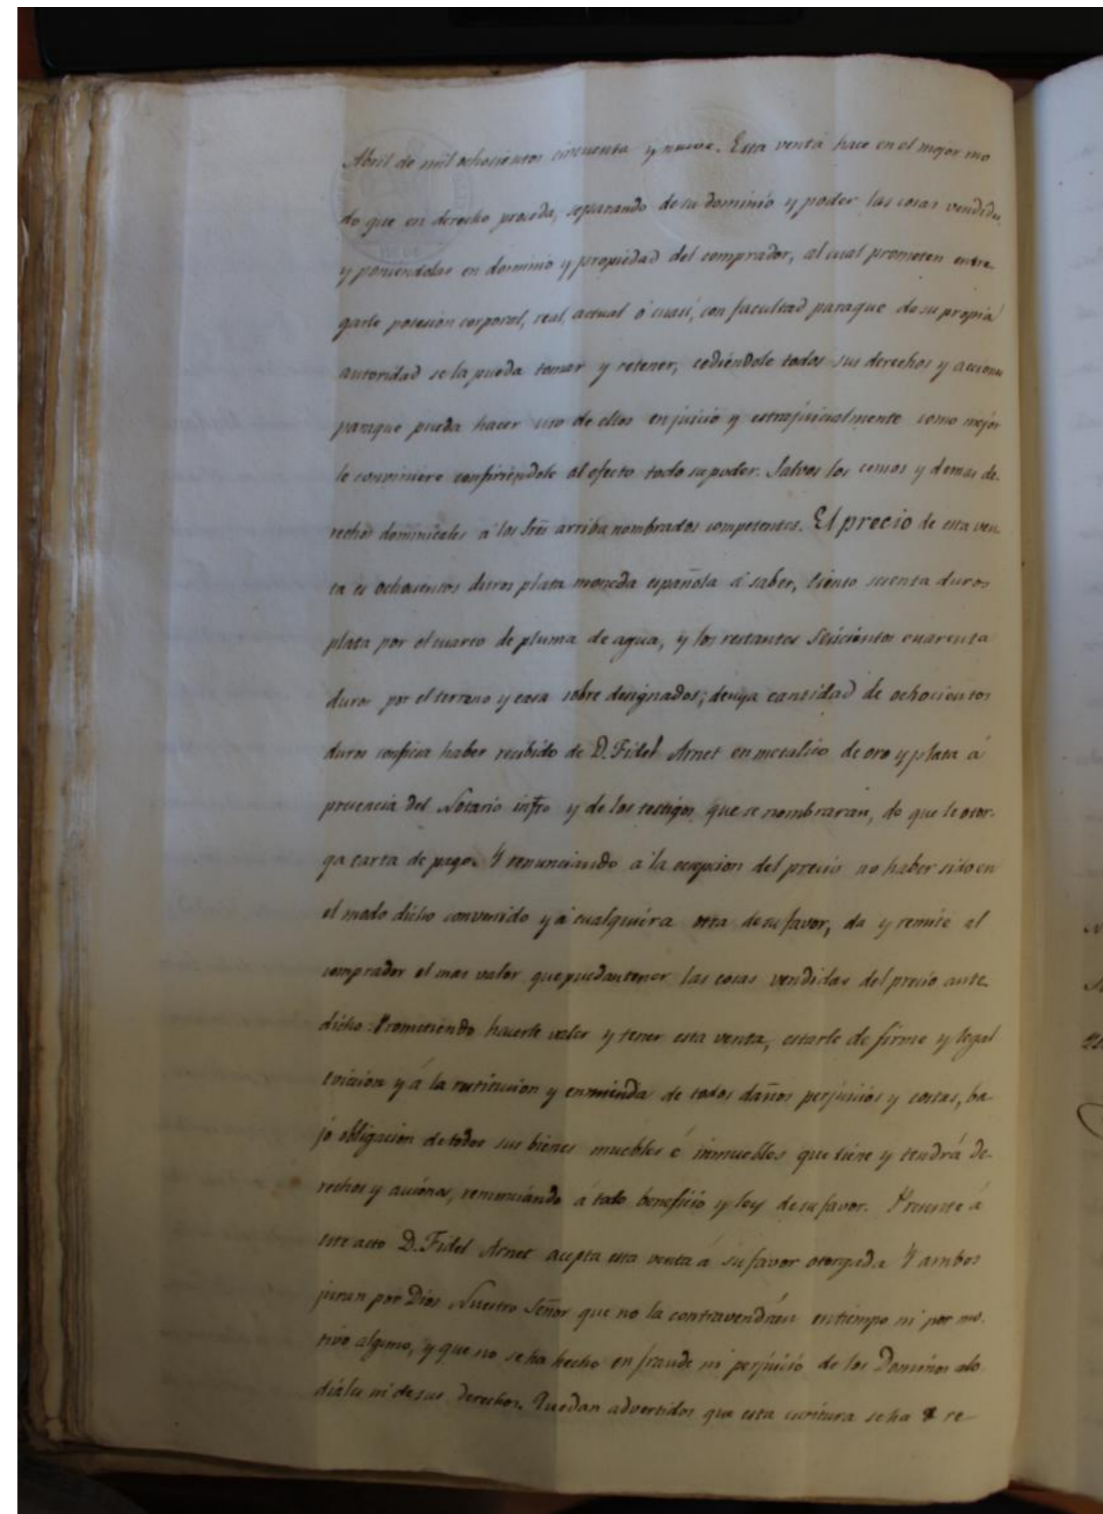 Abril de mil ochocientos cincuenta y nueve. Esta venta hace en el mejor mo
do que en derecho proceda, separando de su dominio y poder las cosas vendidas,
y poniendolas en dominio y propiedad del comprador, al cual prometen entre-
garle posesion corporal, real, actual ó cuasi, con facultad paraque de su propia
autoridad se la pueda tomar y retener, cediéndole todos sus derechos y acciones
paraque pueda hacer uso de ellos en juicio y estrajudicialmente como mejor
le conviniere confiriéndole al efecto todo su poder. Salvos los censos y demas de-
rechos dominicales a los Sres arriba nombrados competentes. El precio de esta ven
ta es ochocientos duros plata moneda española á saber, Ciento sesenta duros
plata por el cuarto de pluma de agua, y los restantes Seiscientos cuarenta
duros por el terreno y casa sobre designados; de cuya cantidad de ochocientos
duros confiesa haber recibido de D. Fidel Arnet en metalico de oro y plata á
presencia del Notario infro y de los testigos que se nombraran, de que le otor-
ga carta de pago. Y renunciando á la escepcion del precio no haber sido en
el modo dicho convenido y á cualquiera otra de su favor, da y remite al
comprador el mas valor que puedan tener las cosas vendidas del precio ante-
dicho: Prometiendo hacerle valer y tener esta venta, estarle de firme y legal
eviccion y á la restitucion y enmienda de todos daños perjuicios y costas, ba-
jo obligacion de todos sus bienes muebles é inmuebles que tiene y tendrá de-
rechos y acciones, renunciando á todo beneficio y ley de su favor. Presente á
este acto D. Fidel Arnet acepta esta venta á su favor otorgada Y ambos
juran por Dios Nuestro Señor que no la contravendran en tiempo ni por mo-
tivo alguno, y que no se ha hecho en fraude ni perjuicio de los Dominios alo
diales ni de sus derechos. Quedan advertidos que esta escritura se ha re-